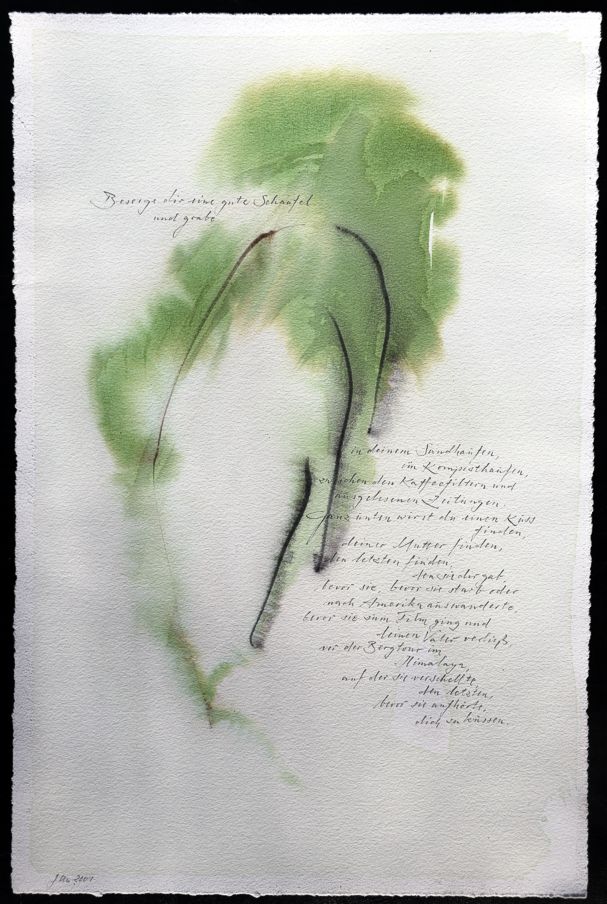 Besorge dir eine gute Schaufel
und grabe
in deinem Sandhaufen,
im Komposthaufen,
zwischen den Kaffeefiltern und
ausgelesenen Zeitungen.
Ganz unten wirst du einen Kuss
finden,
deiner Mutter finden,
den letzten finden,
den sie dir gab,
bevor sie, bevor sie starb oder
nach Amerika auswanderte,
bevor sie zum Film ging und
deinen Vater verließ,
vor der Bergtour im
Himalaya,
auf der sie verschellte,
den letzten,
bevor sie aufhörte,
dich zu küssen.
2001